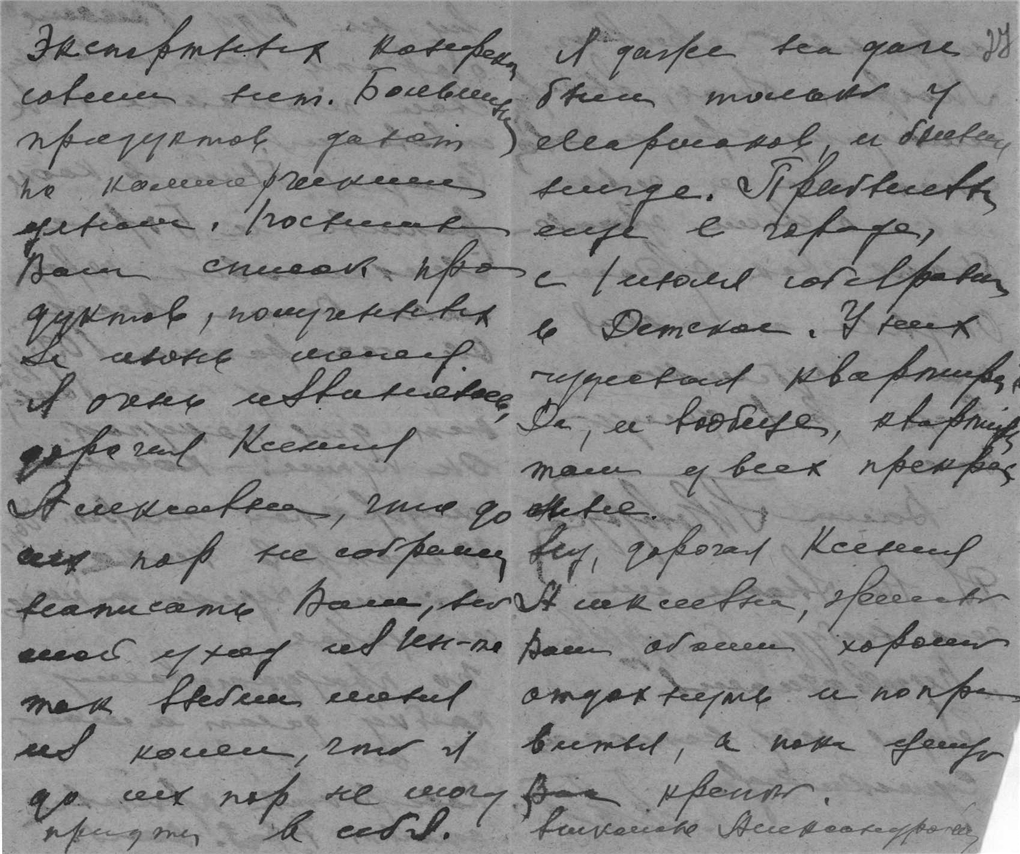 Экспортных конфект
совсем нет. Большинство
продуктов дают
по коммерческим
ценам. Посылаю
Вам список про
дуктов, полученных
в июнь месяц
Я очень извиняюсь,
дорогая Ксения
Алексеевна, что до
сих пор не собралась
написать Вам, но
мой уход из Ин-та
так выбил меня
из колеи, что я
до сих пор не могу
придти в себя.
27
Я даже на даче
была только у
Маршаков, и больше
нигде.
еще в городе,
с 1 июля собираются
в Детское. У них
чудесная квартира
Да, и вообще, квартиры
там у всех прекрас
ные.
Ну, дорогая Ксения
Алексеевна, желаю
Вам обоим хорошо
отдохнуть и попра
виться, а пока целую
Вас крепко.
Александровна